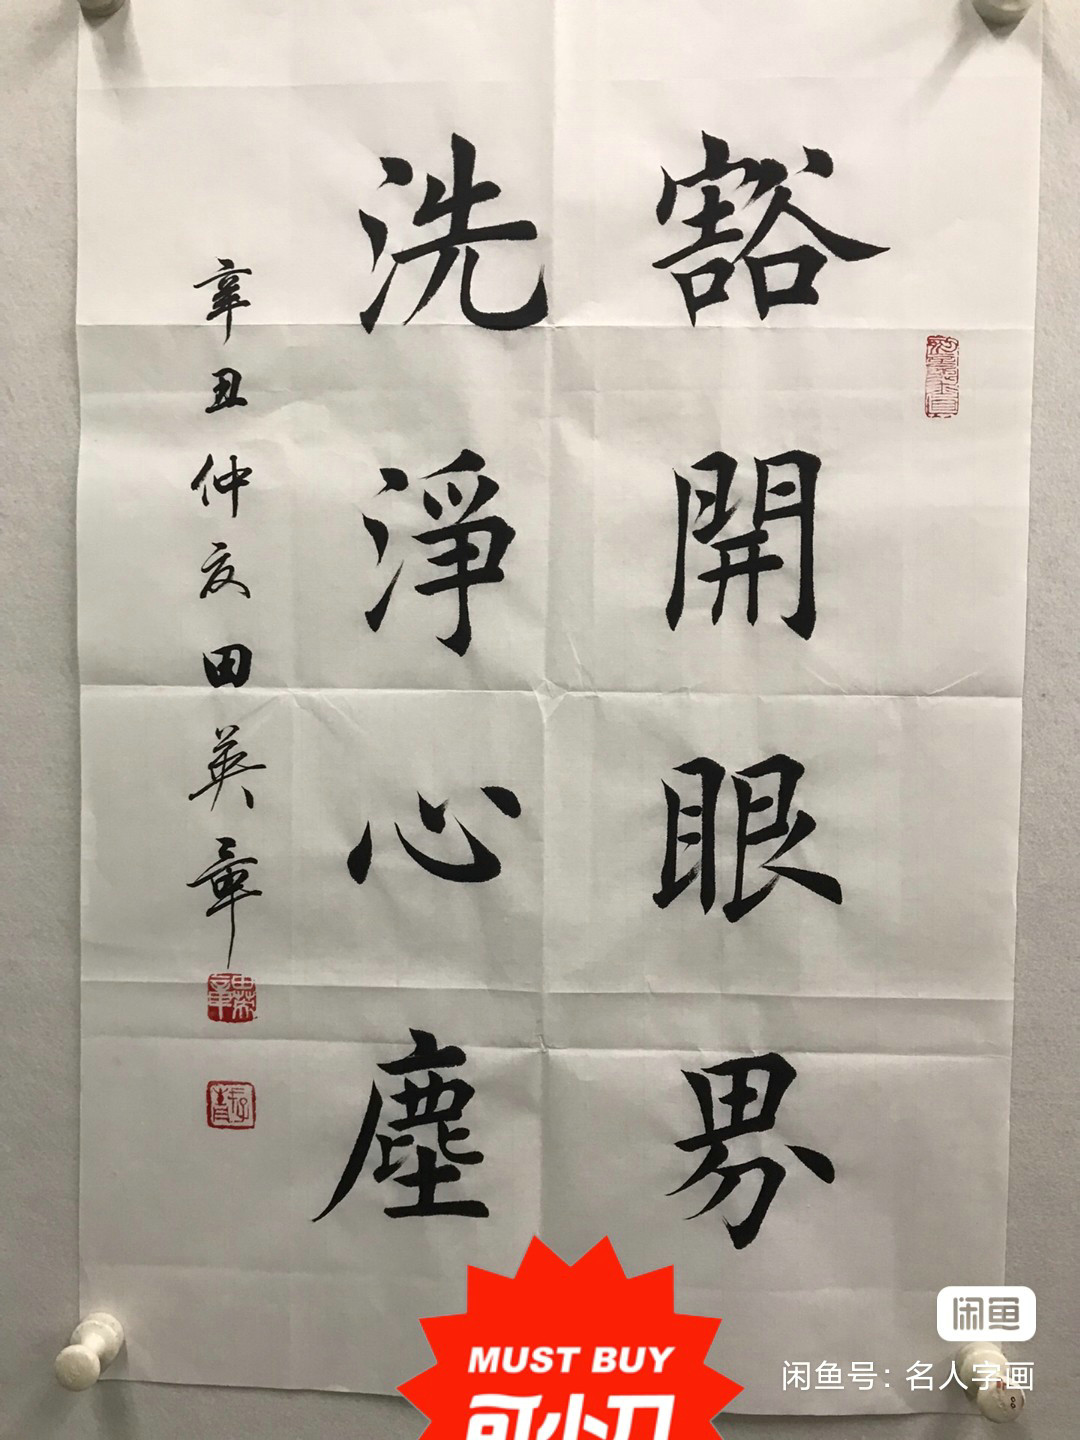 豁開眼界
洗淨心塵
辛丑仲夏田英章
MUST BUY
可小刀
闲鱼
闲鱼号：名人字画